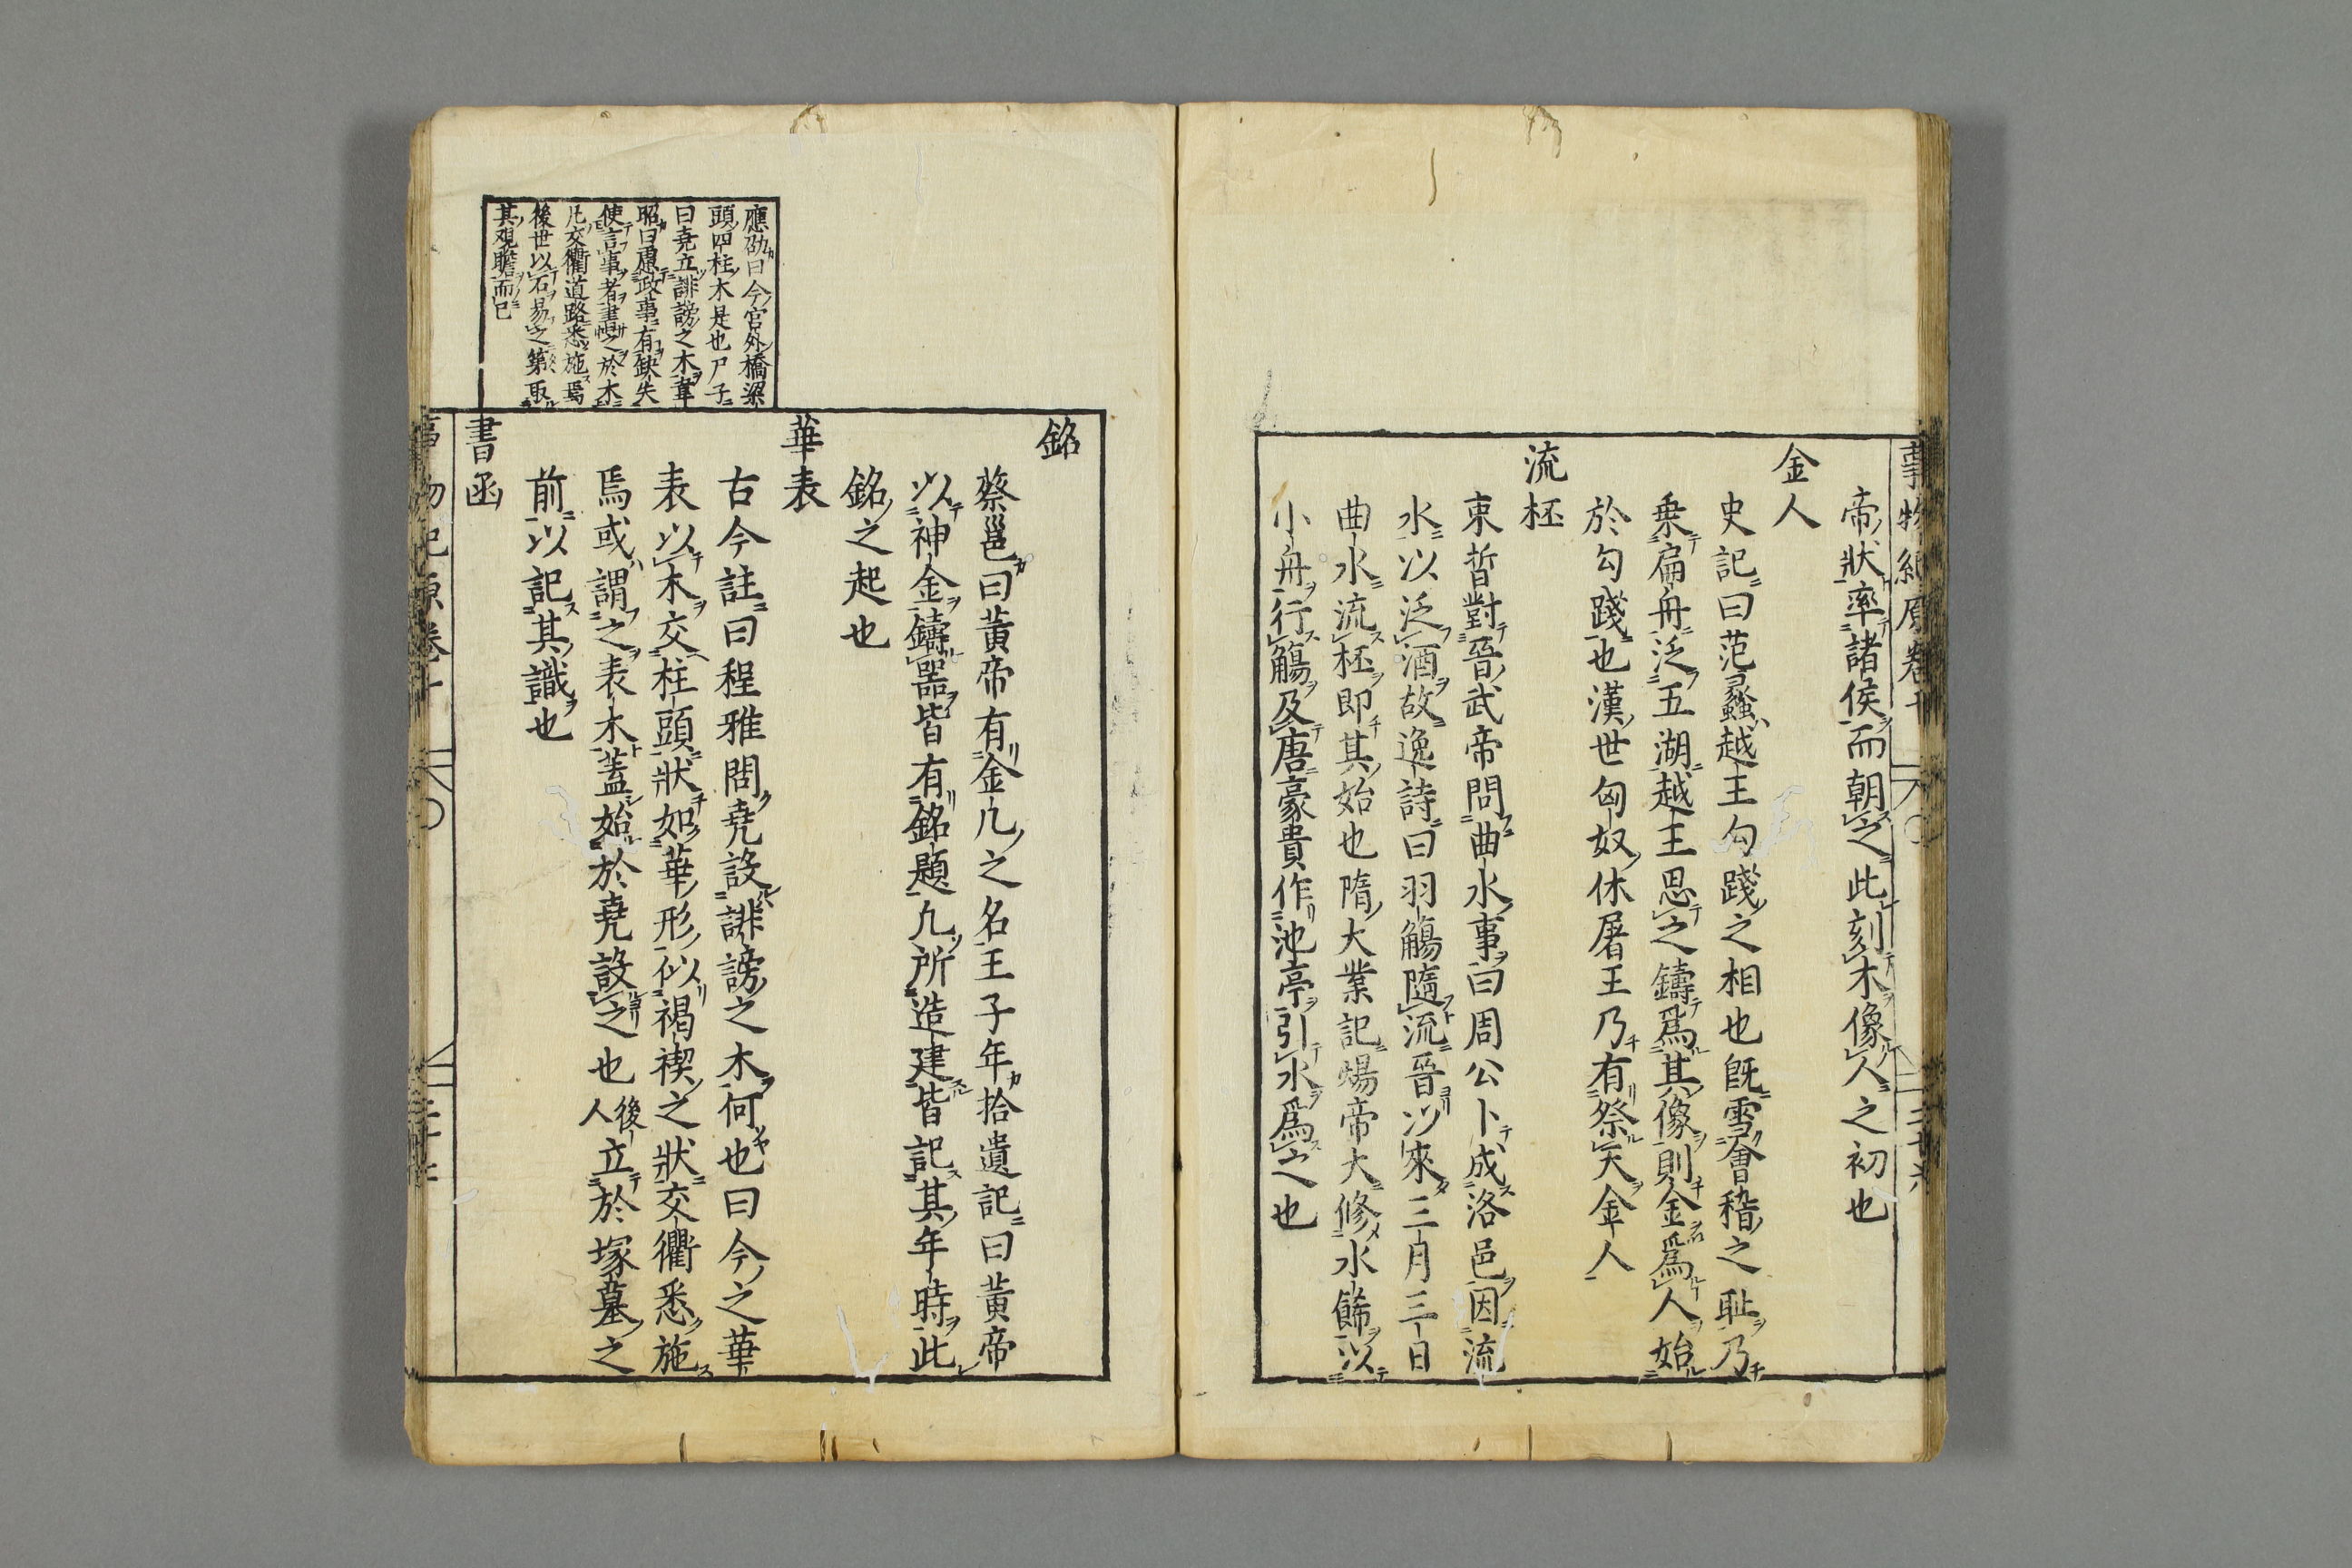 帝狀率諸侯而朝之此刻木像人之初也
金人
史記曰范蠡越王勾踐之相也既雪會稽之耻乃
乗扁舟泛五湖越王思之鑄爲其像則金爲人始
於勾踐也漢世匈奴休屠王乃有祭天金人
流坯
束晳對晉武帝問曲水事曰周公卜成洛邑因流
水以泛酒故逸詩曰羽觴隨流晉以來三月三日
曲水流坯即其始也隋大業記煬帝大修水餙以
小舟行觴及唐豪貴作池亭引水爲之也
應劭曰今宮外橋梁
頭四柱木是也尸子
曰尭立誹謗之木韋
昭曰慮政事有缺失
使言事者書之於木
凡交衢道路悉施焉
後世以石易之第取
其觀瞻而已
銘
蔡邕曰黃帝有金几之名王子年拾遺記曰黃帝
以神金鑄器皆有銘題凢所造建皆記其年時此
銘之起也
華表
古今註曰程雅問尭設誹謗之木何也曰今之華
表以木交柱頭狀如華形似褐禊之狀交衢悉施
焉或謂之表木蓋始於尭設之也後人立於塚墓之
前以記其識也
書函